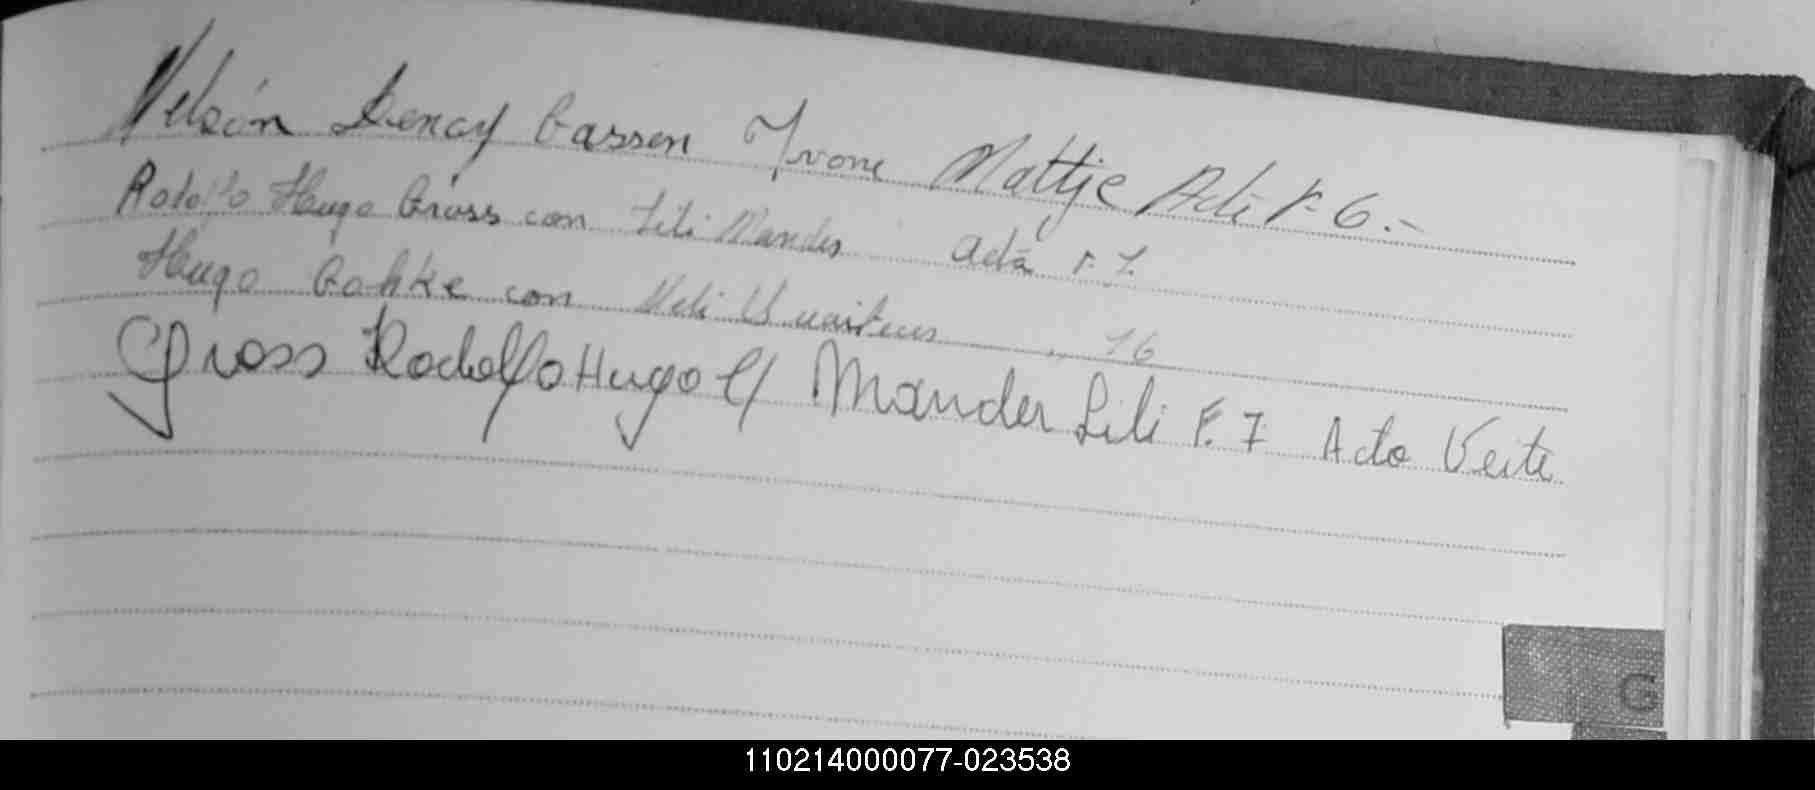 Nelsón Dency Gassen Yvone Mattje Acta F. 6.-
Rodolfo Hugo Gross con Lili Mander Acta F. 7.
Hugo Gahke con Neli 16
Gross Rodolfo Hugo c/ Mander Lili F. 7 Acta Veite
G
110214000077-023538